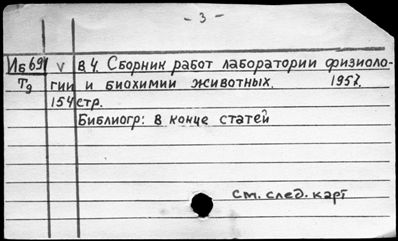 - 3 -
Иб691 V В.4. Сборник работ лаборатории физиоло-
Тэ гии и биохимии животных. 1957.
154 стр.
Библиогр: в конце статей
См. след. карт